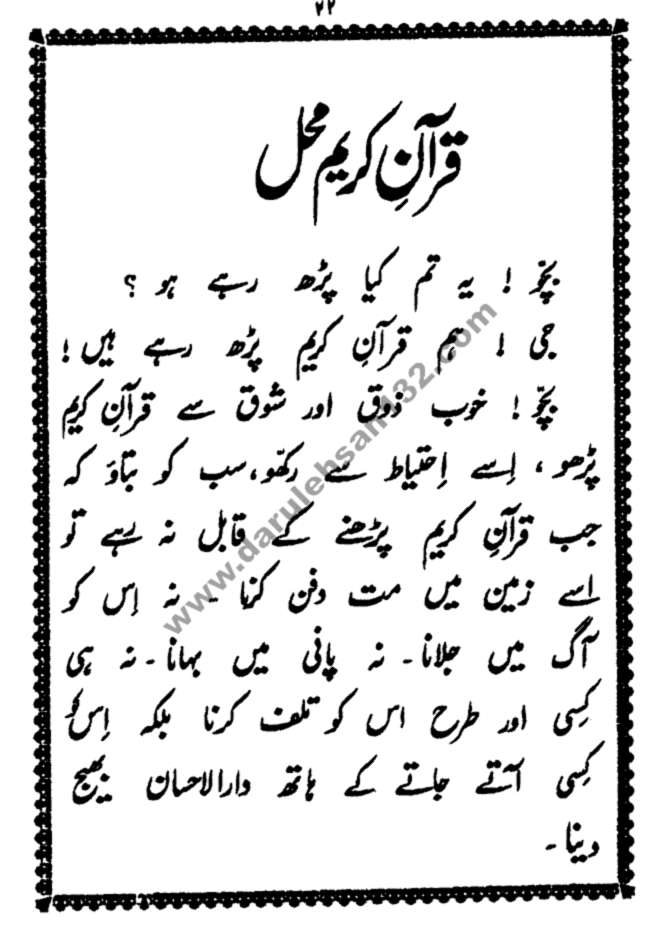 ۲۲
قرآنِ کریم محل
بچّو ! یہ تم کیا پڑھ رہے ہو ؟
جی ! ہم قرآنِ کریم پڑھ رہے ہیں !
بچّو ! خوب ذوق اور شوق سے قرآنِ کریم
پڑھو ، اِسے اِحتیاط سے رکھّو، سب کو بتاؤ کہ
جب قرآنِ کریم پڑھنے کے قابل نہ رہے تو
اسے زمین میں مت دفن کرنا ۔ نہ اِس کو
آگ میں جلانا ۔ نہ پانی میں بہانا ۔ نہ ہی
کِسی اور طرح اس کو تلف کرنا بلکہ اِس کو
کِسی آتے جاتے کے ہاتھ دارالاحسان بھیج
دینا ۔
www.darulehsan132.com